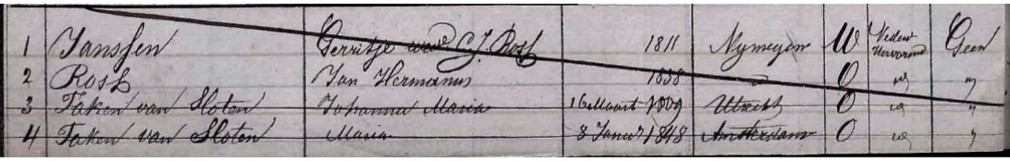 1 Janssen Gerritje wed C.J. Rosh 1811 Nymegen W Neder Hervormd Geen
2 Rosh Jan Hermanus 1838 " O " "
3 Taken van Sloten Johanna Maria 16 Maart 1809 Utrecht O " "
4 Taken van Sloten Maria 8 Januj 1848 Amsterdam O " "